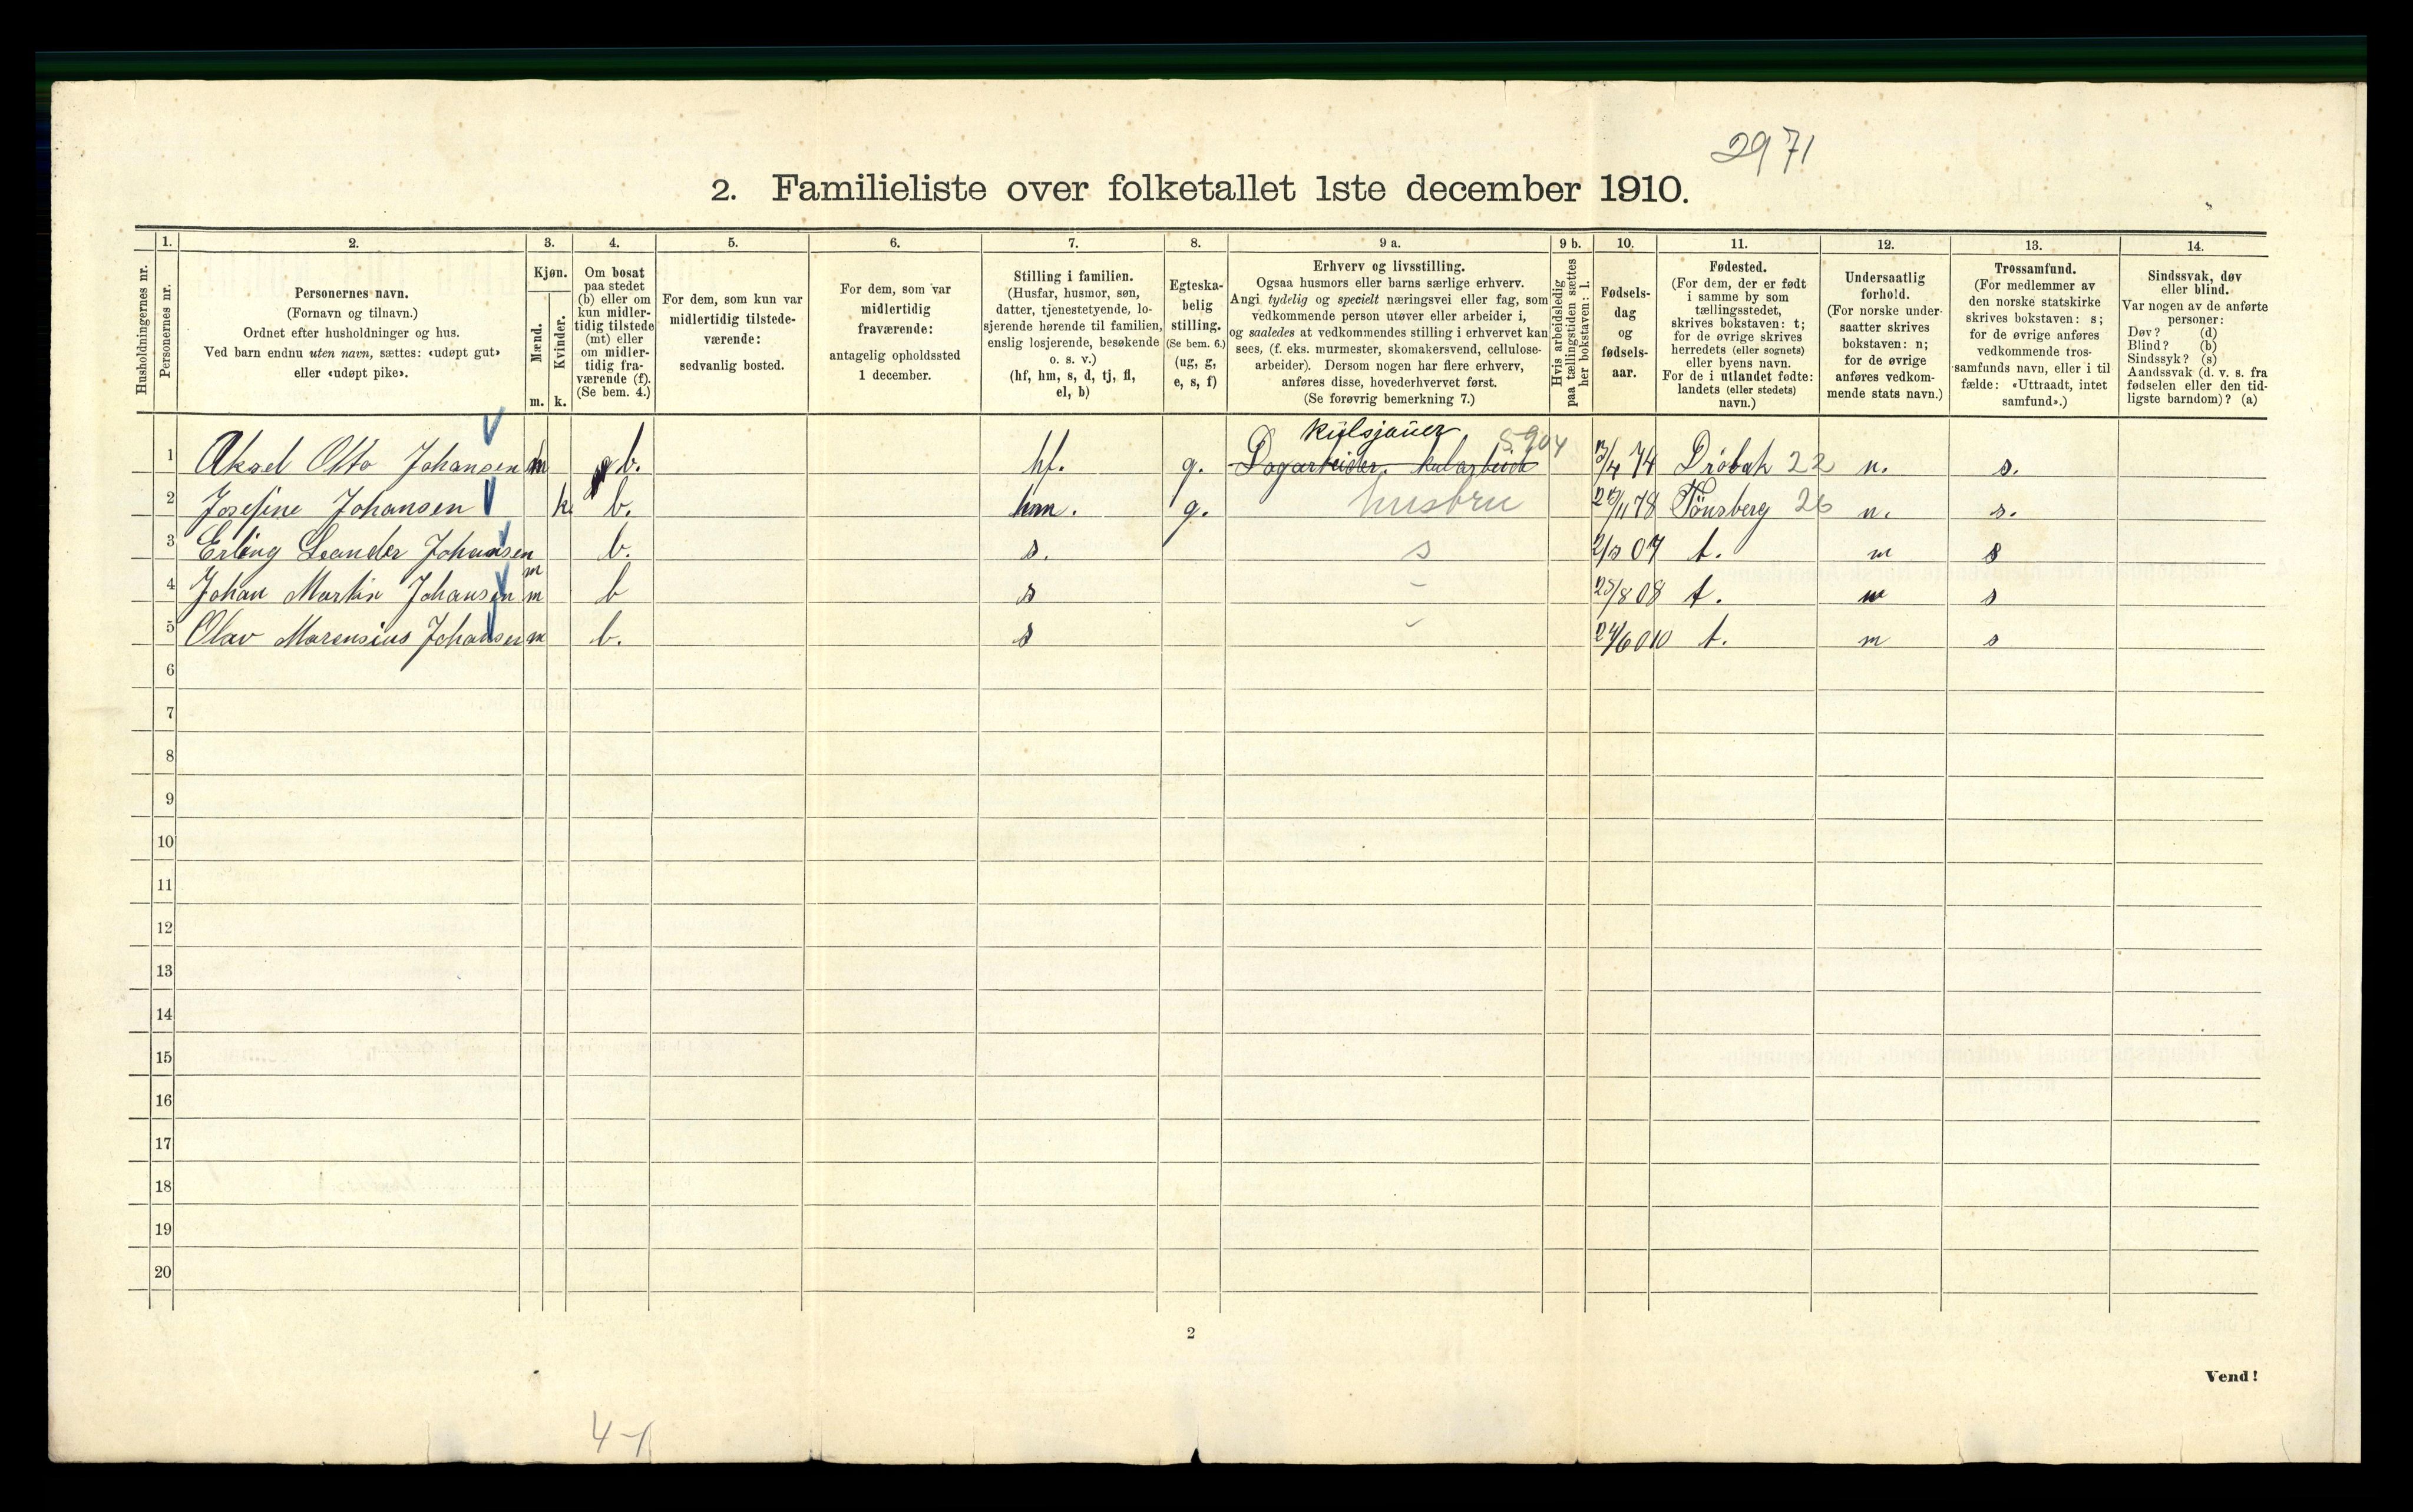 2971
2. Familieliste over folketallet 1ste december 1910.
Husholdningernes nr.
1.
Personernes nr.
2.
Personernes navn.
(Fornavn og tilnavn.)
Ordnet efter husholdninger og hus.
Ved barn endnu uten navn, sættes: «udøpt gut»
eller «udøpt pike».
3.
Kjøn.
Mænd.
Kvinder.
m. k.
4.
Om bosat
paa stedet
(b) eller om
kun midler-
tidig tilstede
(mt) eller
om midler-
tidig fra-
værende (f).
(Se bem. 4.)
5.
For dem, som kun var
midlertidig tilstede-
værende:
sedvanlig bosted.
6.
For dem, som var
midlertidig
fraværende:
antagelig opholdssted
1 december.
7.
Stilling i familien.
(Husfar, husmor, søn,
datter, tjenestetyende, lo-
sjerende hørende til familien,
enslig losjerende, besøkende
o. s. v.)
(hf, hm, s, d, tj, fl,
el, b)
8.
Egteska-
belig
stilling.
(Se bem. 6.)
(ug, g,
e, s, f)
9 a.
Erhverv og livsstilling.
Ogsaa husmors eller barns særlige erhverv.
Angi tydelig og specielt næringsvei eller fag, som
vedkommende person utøver eller arbeider i,
og saaledes at vedkommendes stilling i erhvervet kan
sees, (f. eks. murmester, skomakersvend, cellulose-
arbeider). Dersom nogen har flere erhverv,
anføres disse, hovederhvervet først.
(Se forøvrig bemerkning 7.)
9 b.
Hvis arbeidsledig
paa tællingstiden sættes
her bokstaven: l.
10.
Fødsels-
dag
og
fødsels-
aar.
11.
Fødested.
(For dem, der er født
i samme by som
tællingsstedet,
skrives bokstaven: t;
for de øvrige skrives
herredets (eller sognets)
eller byens navn.
For de i utlandet fødte:
landets (eller stedets)
navn.)
12.
Undersaatlig
forhold.
(For norske under-
saatter skrives
bokstaven: n;
for de øvrige
anføres vedkom-
mende stats navn.)
13.
Trossamfund.
(For medlemmer av
den norske statskirke
skrives bokstaven: s;
for de øvrige anføres
vedkommende tros-
samfunds navn, eller i til
fælde: «Uttraadt, intet
samfund».)
14.
Sindssvak, døv
eller blind.
Var nogen av de anførte
personer:
Døv? (d)
Blind? (b)
Sindssyk? (s)
Aandssvak (d. v. s. fra
fødselen eller den tid-
ligste barndom)? (a)
kulsjauer 5904
1 Aksel Otto Johansen m b. hf. g. Dagarbeider. kularbeide 13/4 74 Drøbak 22 n. s.
2 Josefine Johansen k. b. hm. g. husbru 27/11 78 Tönsberg 26 n. s.
3 Erling Leander Johansen m b. s. s 2/3 07 t. n s
4 Johan Martin Johansen m b s - 25/8 08 t. n s
5 Olav Marensius Johansen m b. s - 24/6 010 t. n s
6
7
8
9
10
11
12
13
14
15
16
17
18
19
20
2
Vend!
4-1